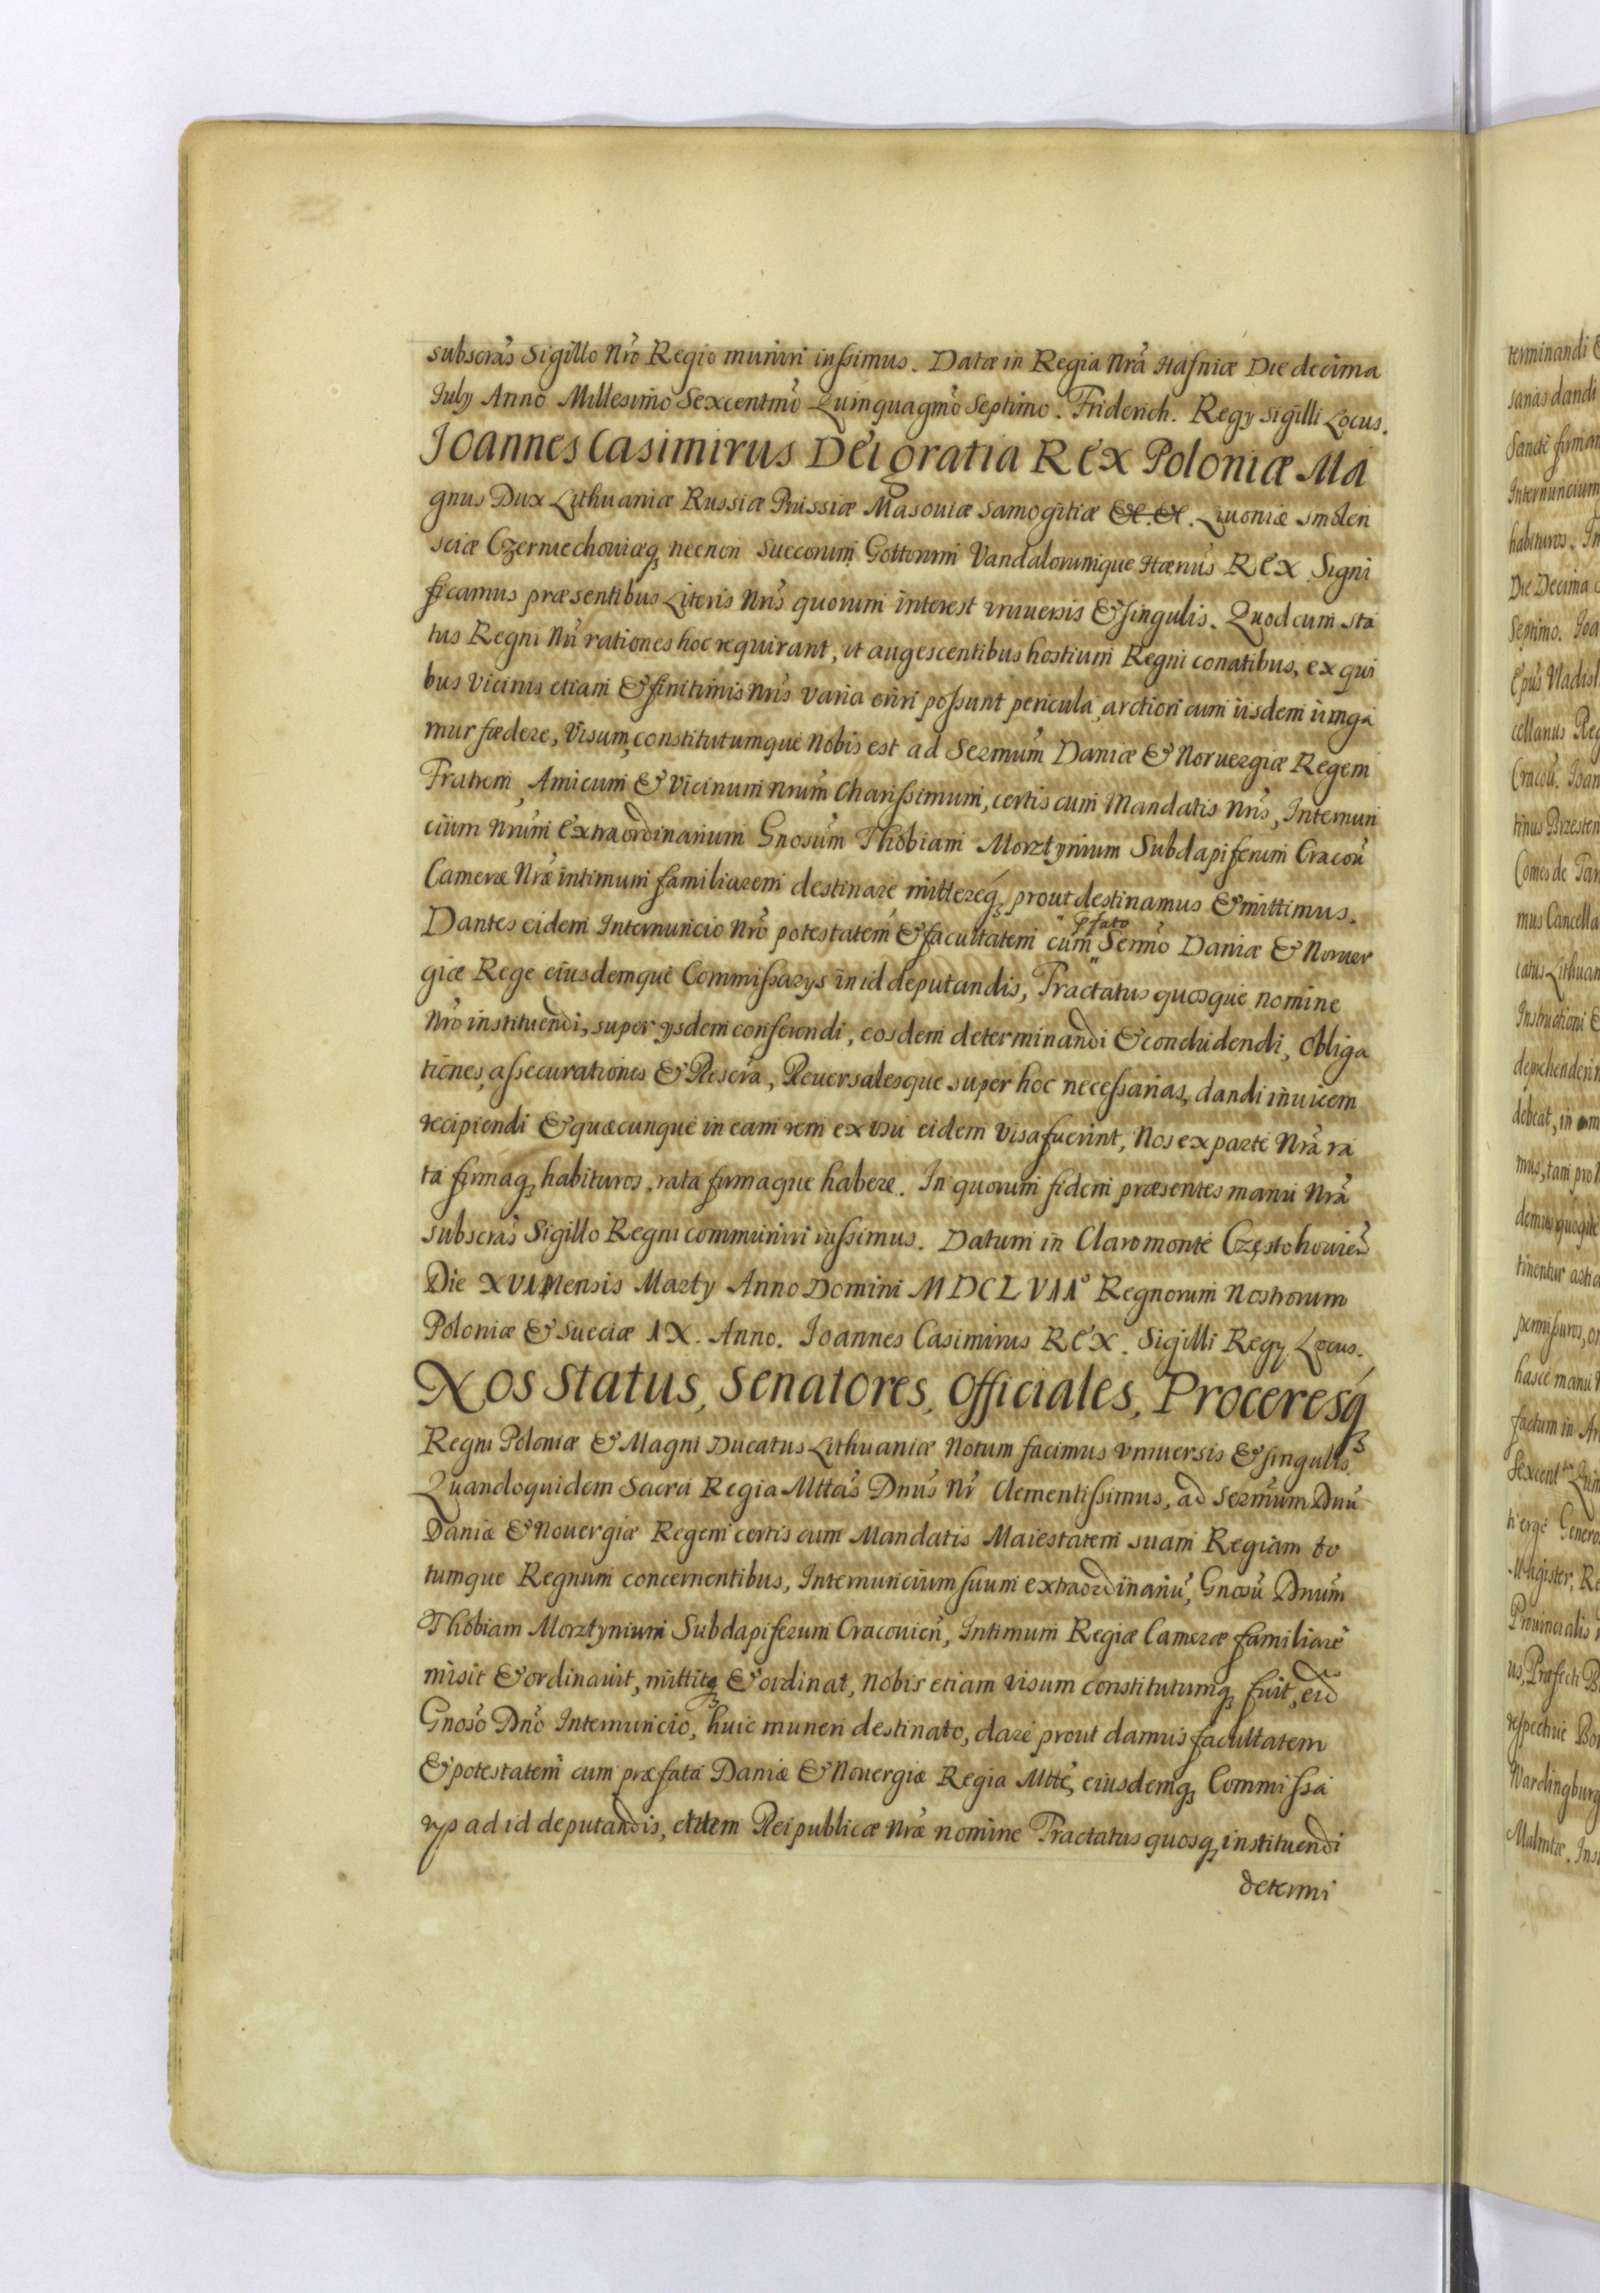 subscras̃ Sigillo Nrõ Regio muniri iussimus. Datæ in Regia Nrã Hafniæ Die decima
July Anno Millesimo Sexcentmõ Quinquagmõ Septimo. Friderich. Regy sigilli Locus.
Joannes Casimirus Dei gratia Rex Poloniæ Ma
gnus Dux Lithuaniæ Russiæ Prussiæ Masouiæ Samogitiæ &c. &c. Liuoniæ Smolen
sciæ Czerniechouiæq, necnon Suecorum Gottorum Vandalorumque Hærus̃ Rex. Signi
ficamus præsentibus Literis Nris̃ quorum interest vniuersis & singulis. Quod cum sta
tus Regni Nri̇̃ rationes hoc requirant, vt augescentibus hostium Regni conatibus, ex qui
bus vicinis etiam & finitimis Nris̃ varia oriri possunt pericula, arctiori cum iisdem iunga
mur fœdere, Visum, constitutumque Nobis est ad Sermum̃ Daniæ & Noruergiæ Regem
Fratrem, Amicum & Vicinum Nrum̃ Charissimum, certis cum Mandatis Nris̃, Internun
cium Nrum̃ Extraordinarium Gnosum̃ Thobiam Morztynium Subdapiferum Cracou̇̃
Cameræ Nræ̃ intimum familiarem destinare mittereq, prout destinamus & mittimus.
Dantes eidem Internuncio Nrõ potestatem & facultatem cum pfato Sermõ Daniæ & Noruer
giæ Rege eiusdemque Commissarys in id deputandis, Tractatus quosque nomine
Nrõ instituendi, super ysdem conferendi, eosdem determinandi & concludendi, obliga
tiones, assecurationes & Rescrȧ̃, Reuersalesque super hoc necessarias, dandi inuicem
recipiendi & quæcunque in eam rem ex vsu eidem visa fuerint, Nos ex parte Nrã ra
ta firmaq, habituros, rata firmaque habere. In quorum fidem præsentes manu Nrã
subscras̃ Sigillo Regni communiri iussimus. Datum in Claro monte Częstohouien̄
Die XVI Mensis Marty Anno Domini MDCLVII° Regnorum Nostrorum
Poloniæ & Sueciæ IX. Anno. Joannes Casimirus Rex. Sigilli Regy Locus.
Nos Status, Senatores, Officiales, Proceresq,
Regni Poloniæ & Magni Ducatus Lithuaniæ Notum facimus vniuersis & singulis.
Quandoquidem Sacra Regia Mttas̃ Dnus̃ Nr̃ Clementissimus, ad Sermum̃ Dnũ
Daniæ & Nouergiæ Regem certis cum Mandatis Maiestatem suam Regiam to
tumque Regnum concernentibus, Internuncium suum extraordinariũ, Gnosũ Dnum̃
Thobiam Morztynium Subdapiferum Cracouien̄, Intimum Regiæ Cameræ familiarẽ
misit & ordinauit, mittitq & ordinat, Nobis etiam visum constitutumq, fuit, eid̄
Gnosõ Dnõ Internuncio, huic muneri destinato, dare prout damus facultatem
& potestatem cum præfata Daniæ & Nouergiæ Regia Mttẽ, eiusdemq, Commissa
rys ad id deputandis, Reipublicæ Nræ̃ nomine Tractatus quosq, instituendi
determi